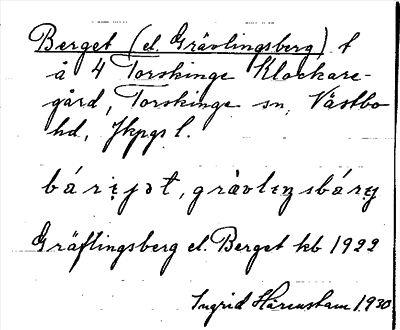 Berget (el. Grävlingsberg) t
å 4 Torskinge Klockare-
gård, Torskinge sn, Västbo
hd, Jkpgs l.
bárıȷət, gràvlıŋsbárıȷ
Gräflingsberg el. Berget kb 1922
Ingrid Hårenstam 1930